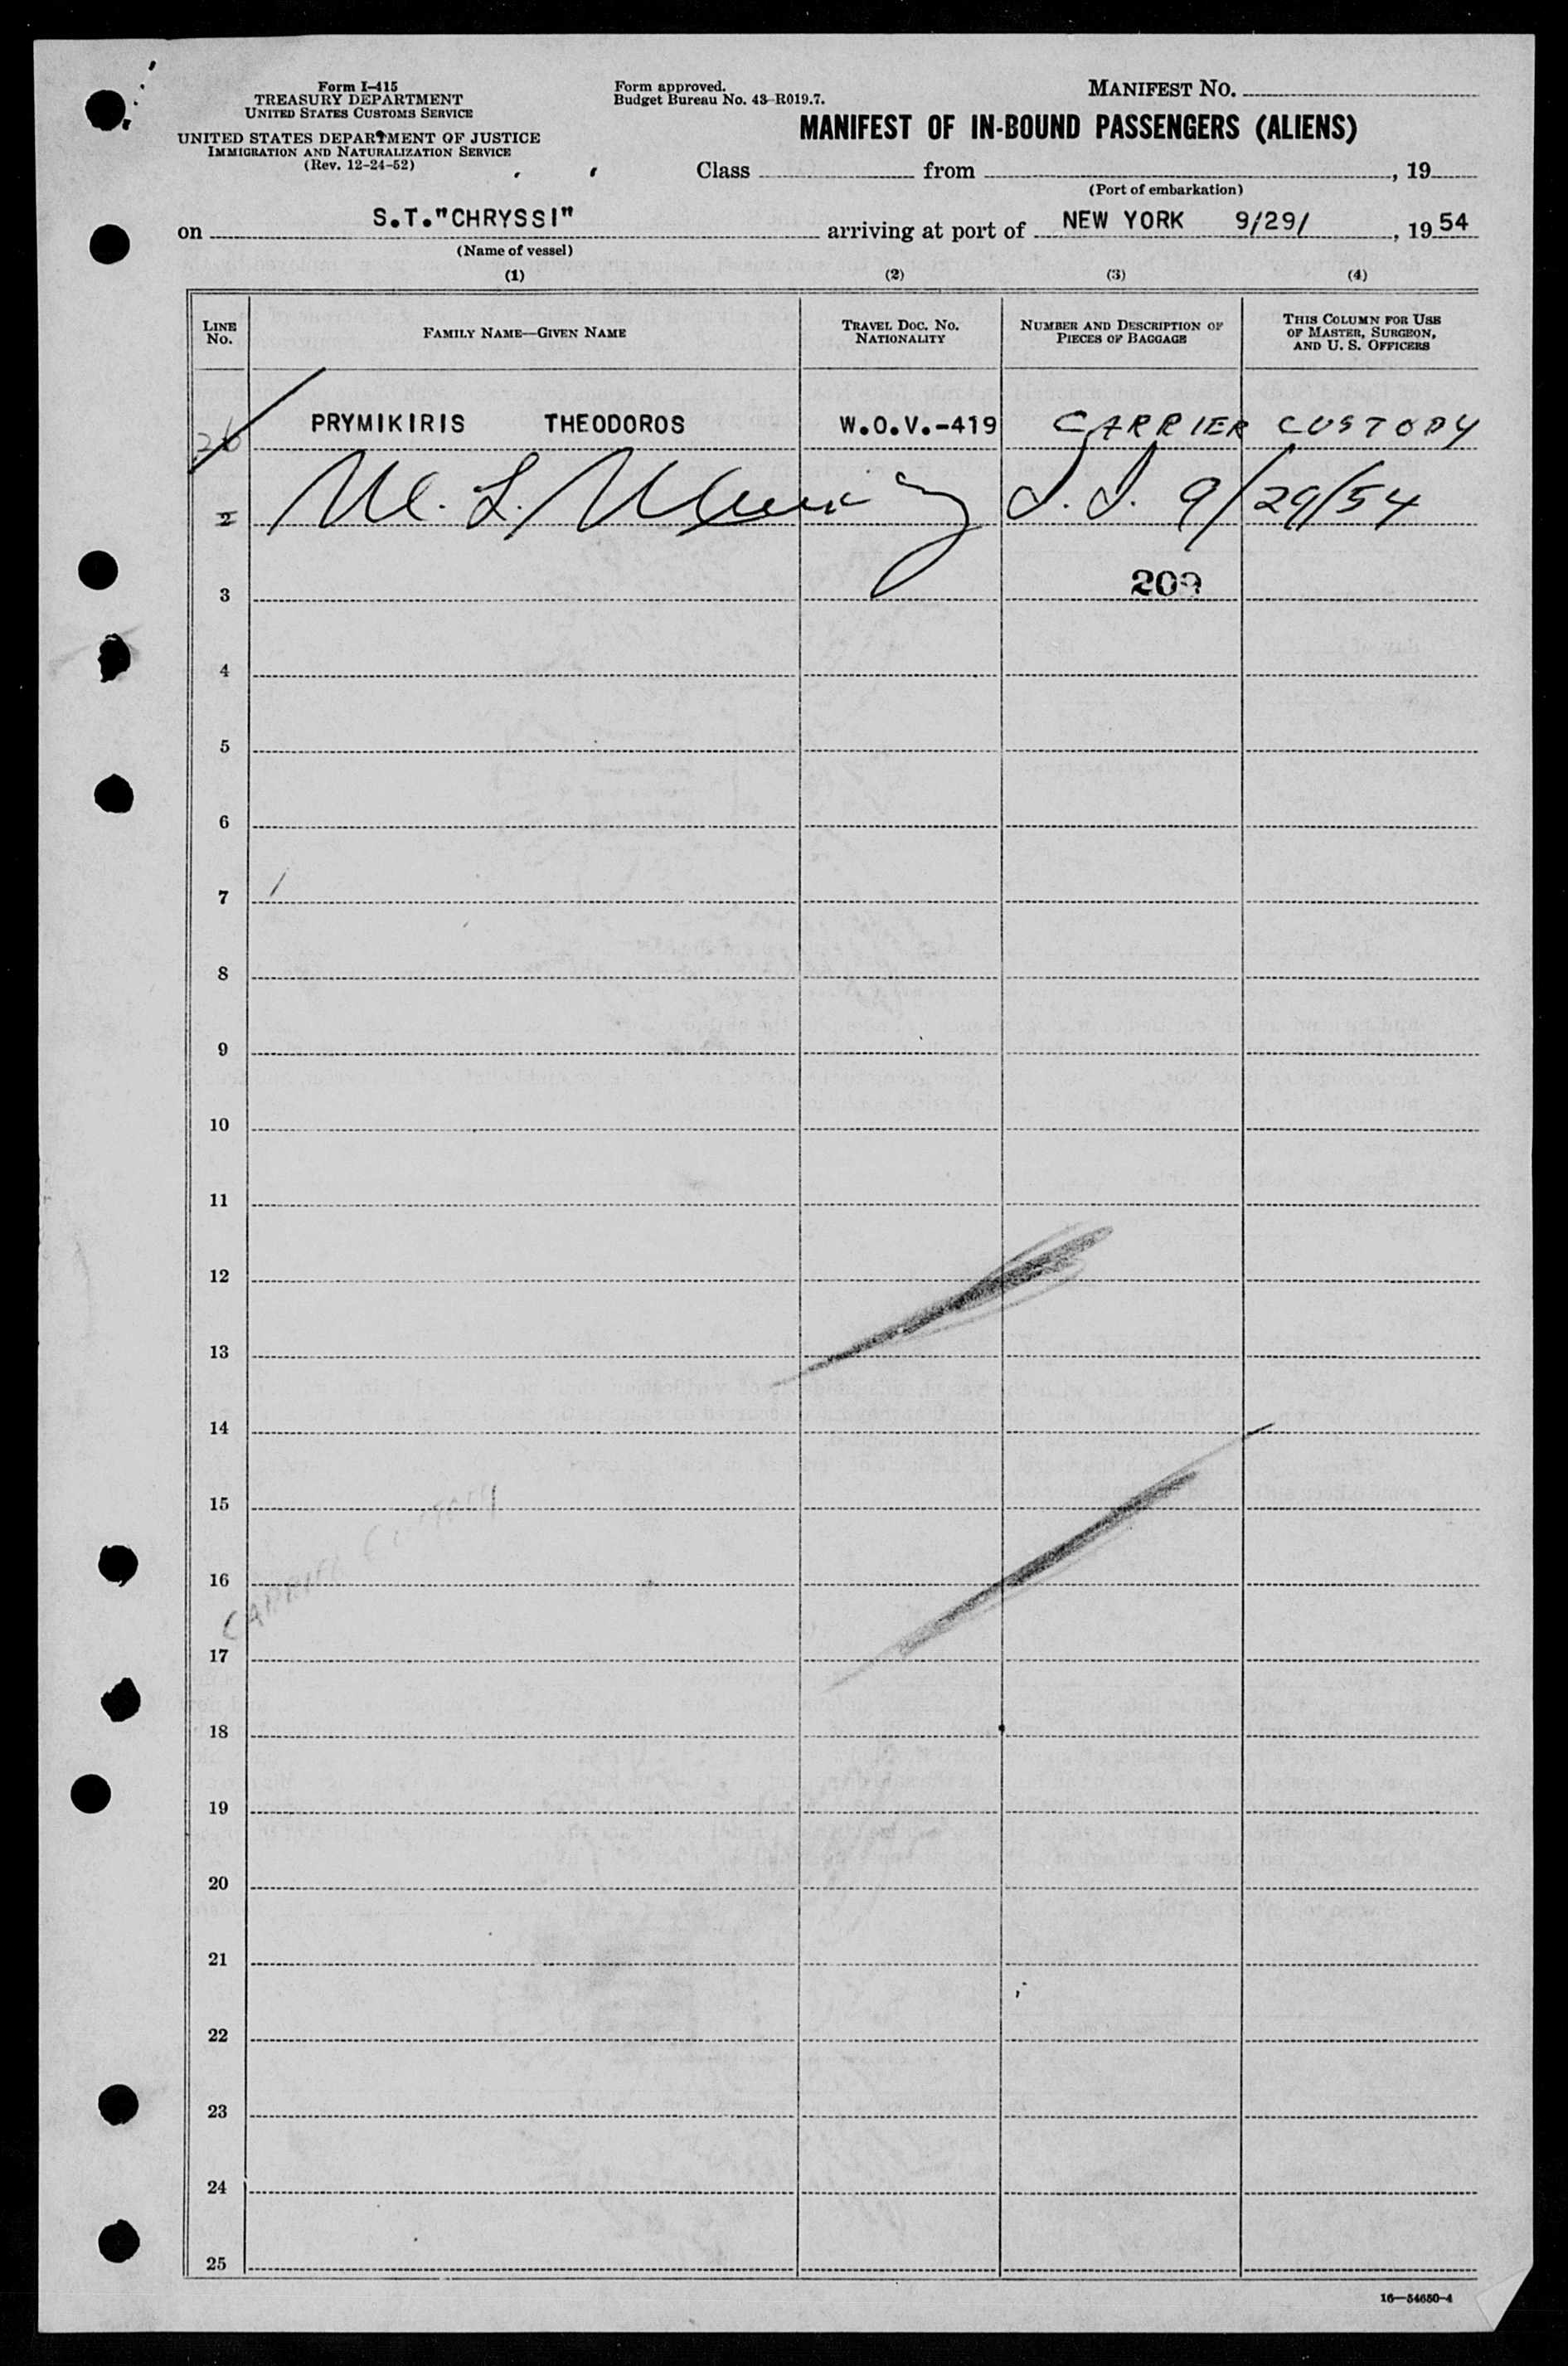 Form I-415
TREASURY DEPARTMENT
UNITED STATES CUSTOMS SERVICE
UNITED STATES DEPARTMENT OF JUSTICE
IMMIGRATION AND NATURALIZATION SERVICE
(Rev. 12-24-52)
Form approved.
Budget Bureau No. 43-R019.7.
MANIFEST NO.
MANIFEST OF IN-BOUND PASSENGERS (ALIENS)
Class from , 19
(Port of embarkation)
on S.T."CHRYSSI" arriving at port of NEW YORK 9/29/ , 19 54
(Name of vessel)
(1) (2) (3) (4)
LINE NO. FAMILY NAME—GIVEN NAME TRAVEL DOC. NO. NATIONALITY NUMBER AND DESCRIPTION OF PIECES OF BAGGAGE THIS COLUMN FOR USE OF MASTER, SURGEON, AND U. S. OFFICERS
PRYMIKIRIS THEODOROS W.O.V.-419 CARRIER CUSTODY
2 M. L. 9/29/54
3 209
4
5
6
7
8
9
10
11
12
13
14
15
16 CARRIER CUSTODY
17
18
19
20
21
22
23
24
25
16—54650-4